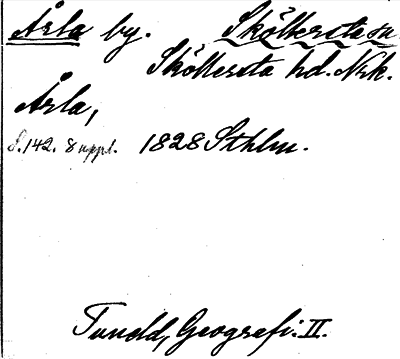 Årla by. Sköllersta sn.
Sköllersta hd. Nrk.
Årla,
S. 142. 8 uppl. 1828 Sthlm.
Tuneld, Geografi. II.